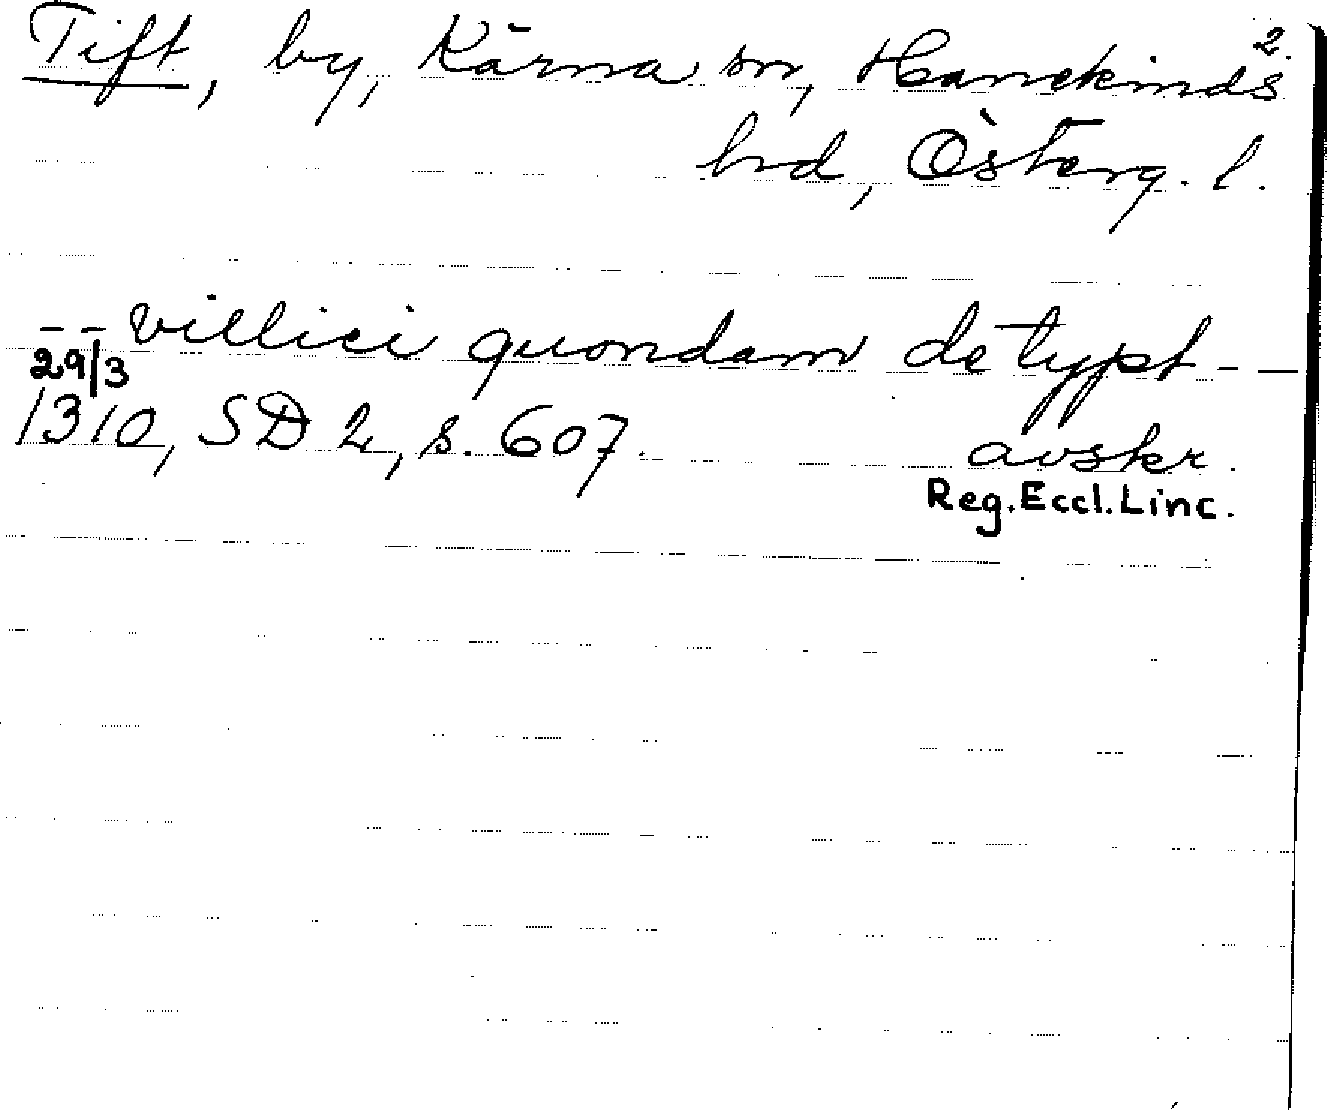 2.
Tift, by, Kärna sn, Hanekinds
hd, Österg. l.
-- villici quondam de typt --
29/3
1310, SD 2, s. 607. avskr.
Reg. Eccl. Linc.